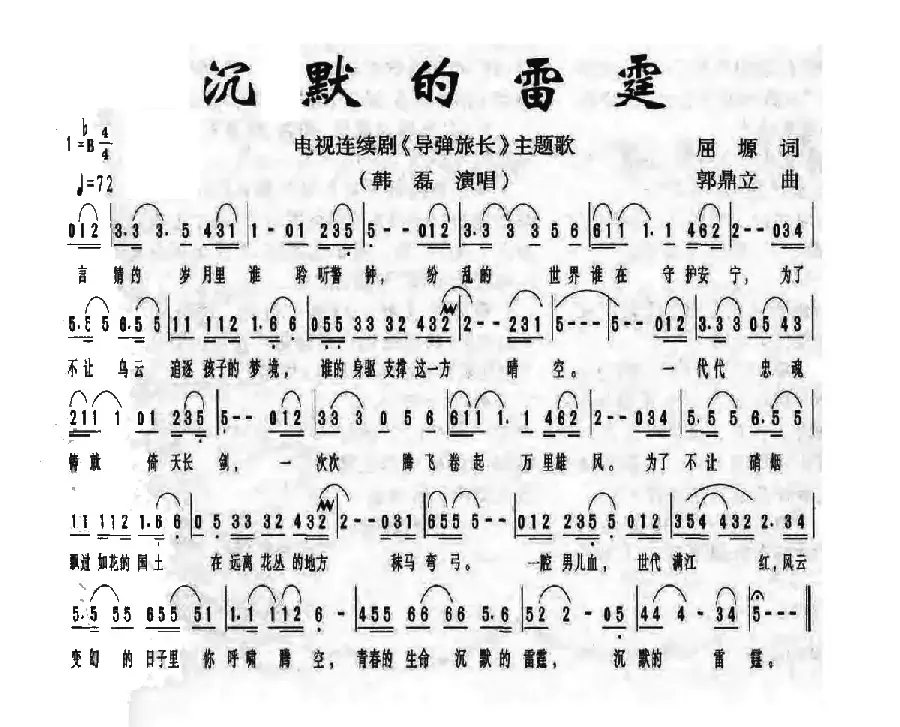 沉默的雷霆
1=♭B 4/4
电视连续剧《导弹旅长》主题歌
屈塬 词
♩=72
（韩磊 演唱）
郭鼎立 曲
012 3.3 3.5 431 1-01 235 5--012 3.3 3 3 5 6 611 1.1 462 2--034
的 岁月里谁 聆听警钟，纷乱的 世界谁在 守护安宁，为了
5.5 5 6.5 5 11 112 1.6 6 055 33 32 432 2--231 5--- 5--012 3.3 3 05 43
不让 乌云 追逐 孩子的 梦境，谁的 身驱 支撑 这一方 晴 空。 一代代 忠魂
211 1 01 235 5--012 33 3 0 5 6 611 1.1 462 2--034 5.5 5 6.5 5
铸就 倚天长 剑，一次次 腾飞卷起 万里雄风。为了 不让 硝烟
11 112 1.6 6 0 5 33 32 432 2--031 655 5-- 012 235 5 012 354 432 2.34
飘过 如花的 国土 在 远离 花丛 的地方 秣马 弯弓。 一腔 男儿血，世代 满江 红，风云
5.5 55 655 51 1.1 112 6- 455 66 66 5.6 52 2-05 44 4-34 5---
变幻 的 日子里 你 呼啸 腾 空，青春的 生命 沉 默的 雷霆， 沉 默的 雷 霆。